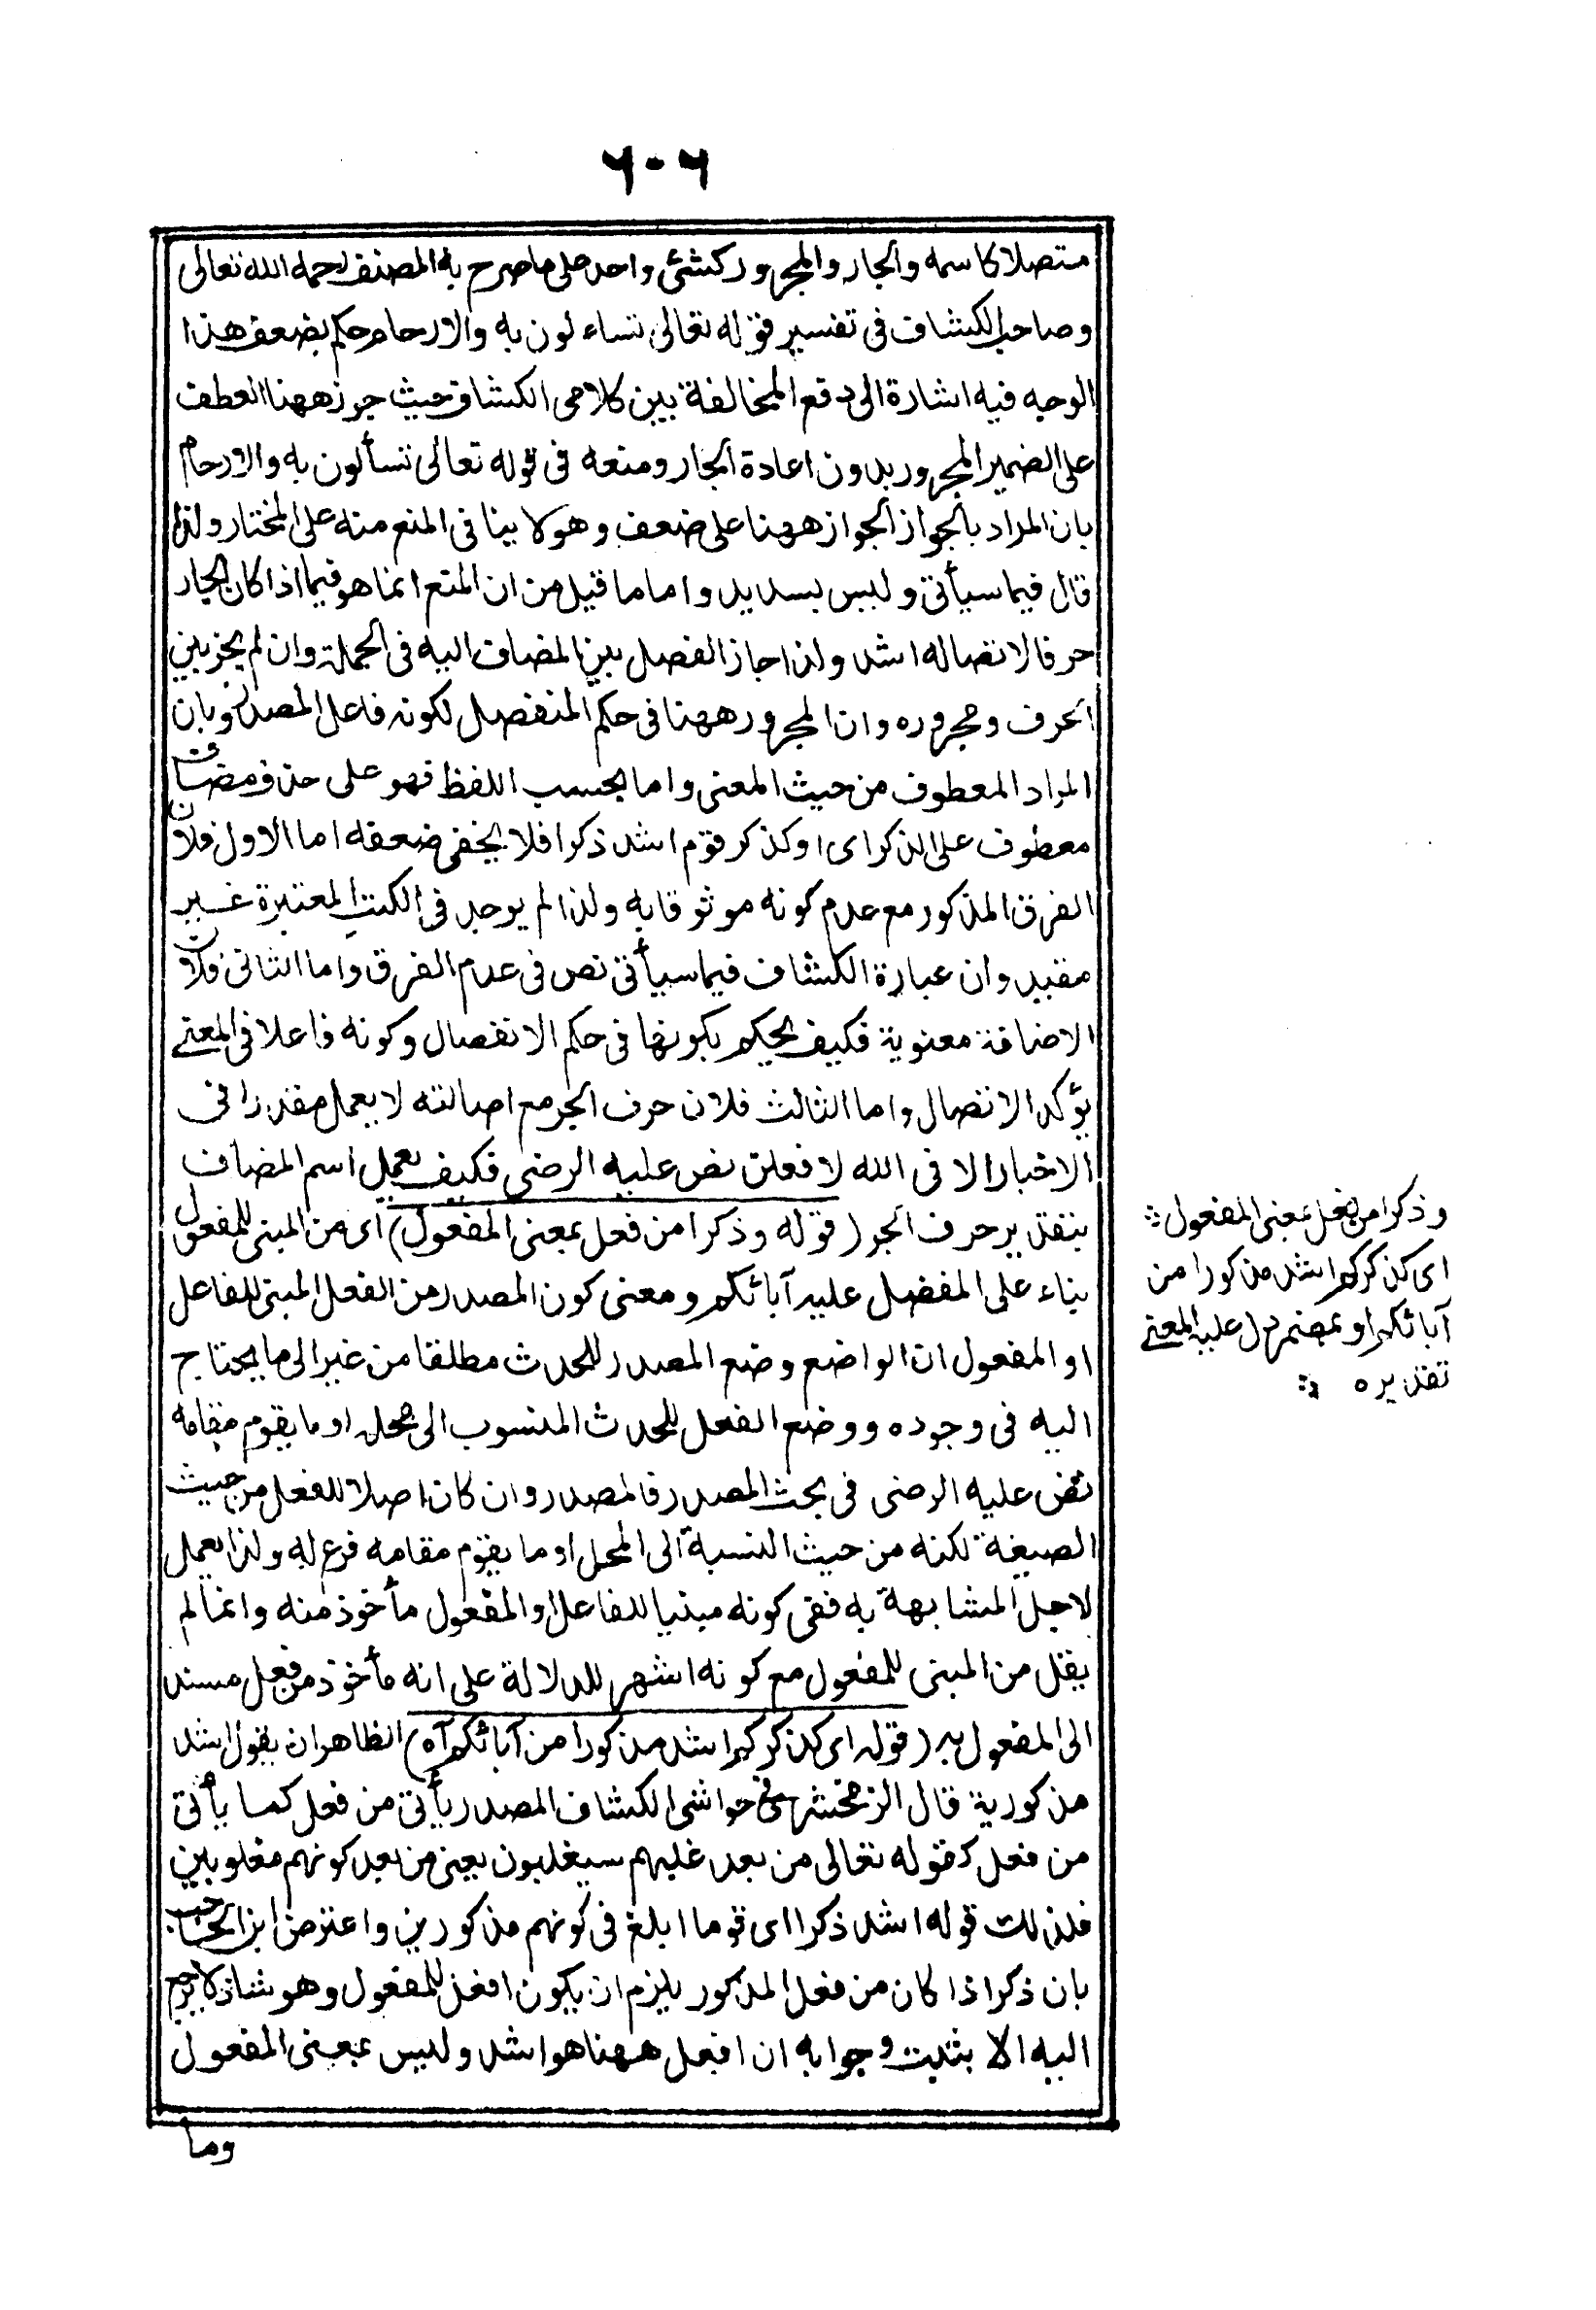 ٦٠٦
متصلا كاسمه والجار والمجرور كشئ واحد على ما صرح به المصنف رحمه الله تعالى
وصاحب الكشاف فى تفسير قوله تعالى تساءلون به والارحام حكم بضعف هذا
الوجه فيه اشارة الى دفع المخالفة بين كلامى الكشاف حيث جوز ههنا العطف
على الضمير المجرور بدون اعادة الجار ومنعه فى قوله تعالى تسألون به والارحام
بان المراد بالجواز الجواز ههنا على ضعف وهو لا ينافى المنع منه على المختار ولذا
قال فيما سيأتى وليس بسديد واما ما قيل من ان المنع انما هو فيما اذا كان الجار
حرفا لاتصاله اشد ولذا جاز الفصل بين المضاف اليه فى الجملة وان لم يجز بين
الحرف ومجروره وان المجرور ههنا فى حكم المنفصل لكونه فاعل المصدر وبان
المراد المعطوف من حيث المعنى واما بحسب اللفظ فهو على حذف مضاف
معطوف على الذكر اى او كذكر قوم اشد ذكرا فلا يخفى ضعفه اما الاول فلان
الفرق المذكور مع عدم كونه موثوقا به ولذا لم يوجد فى الكتب المعتبرة غير
مفيد وان عبارة الكشاف فيما سيأتى نص فى عدم الفرق واما الثانى فلان
الاضافة معنوية فكيف يحكم بكونها فى حكم الانفصال وكونه فاعلا فى المعنى
يؤكد الاتصال واما الثالث فلان حرف الجر مع اصالته لا يعمل مقدرا فى
الاختيار الا فى الله لافعلن نص عليه الرضى فكيف يعمل اسم المضاف
بتقدير حرف الجر (قوله وذكرا من فعل بمعنى المفعول) اى من المبنى للمفعول
بناء على المفضل عليه آبائكم ومعنى كون المصدر من الفعل المبنى للفاعل
او المفعول ان الواضع وضع المصدر للحدث مطلقا من غير الى ما يحتاج
اليه فى وجوده ووضع الفعل للحدث المنسوب الى محل او ما يقوم مقامه
نص عليه الرضى فى بحث المصدر فالمصدر وان كان اصلا للفعل من حيث
الصيغة لكنه من حيث النسبة الى المحل او ما يقوم مقامه فرع له ولذا يعمل
لاجل المشابهة به فقى كونه مبنيا للفاعل او المفعول مأخوذ منه وانما لم
يقل من المبنى للمفعول مع كونه اشهر للدلالة على انه مأخوذ من فعل مسند
الى المفعول به (قوله اى كذكركم اشد مذكورا من آبائكم آه) الظاهر ان يقول اشد
مذكورية قال الزمخشرى فى حواشى الكشاف المصدر يأتى من فعل كما يأتى
من فعل كقوله تعالى من بعد غلبهم سيغلبون يعنى من بعد كونهم مغلوبين
فلذلك قوله اشد ذكرا اى قوما ابلغ فى كونهم مذكورين واعترض ابن الحاجب
بان ذكرا اذا كان من فعل المذكور يلزم ان يكون افعل للمفعول وهو شاذ لا يرجع
اليه الا بثبت وجوابه ان افعل ههنا هو اشد وليس بمعنى المفعول
وما
وذكرا من فعل بمعنى المفعول
اى كذكركم اشد مذكورا من
آبائكم او بمضمر دل عليه المعنى
تقديره